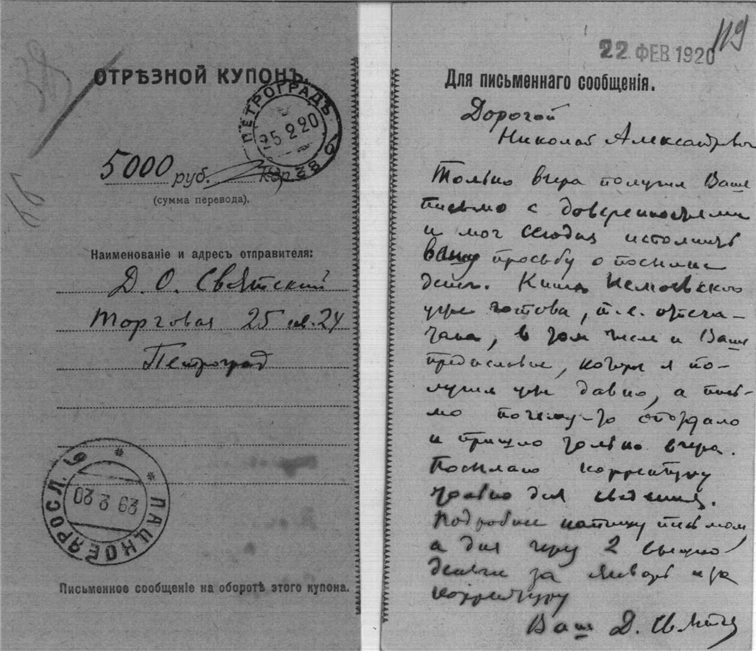 ОТРѢЗНОЙ КУПОНЪ.
ПЕТРОГРАДЪ
25 2 20
5000 руб. кор.
(сумма перевода).
Наименованіе и адресъ отправителя:
Д. О. Святский
Торговая 25 кв. 24
Петроград
ПАЦКОЕ ЯРОСЛ. 
29 2 20
Письменное сообщеніе на оборотѣ этого купона.
119
22 ФЕВ 1920
Для письменнаго сообщенія.
Дорогой
Николай Александрович
Только вчера получил Ваше
письмо с доверенностями
и мог сегодня исполнить
Вашу просьбу о посылке
денег. Книга Немоевского
уже готова, т.е. отпеча-
тана, в том числе и Ваше
предисловие, которое я по-
лучил уже давно, а пись-
мо почему-то опоздало
и пришло только вчера.
Посылаю корректуру
только для сведения.
Подробнее напишу письмом,
а дня через 2 вышлю
деньги за январь и за
корректуру
Ваш Д. Святский